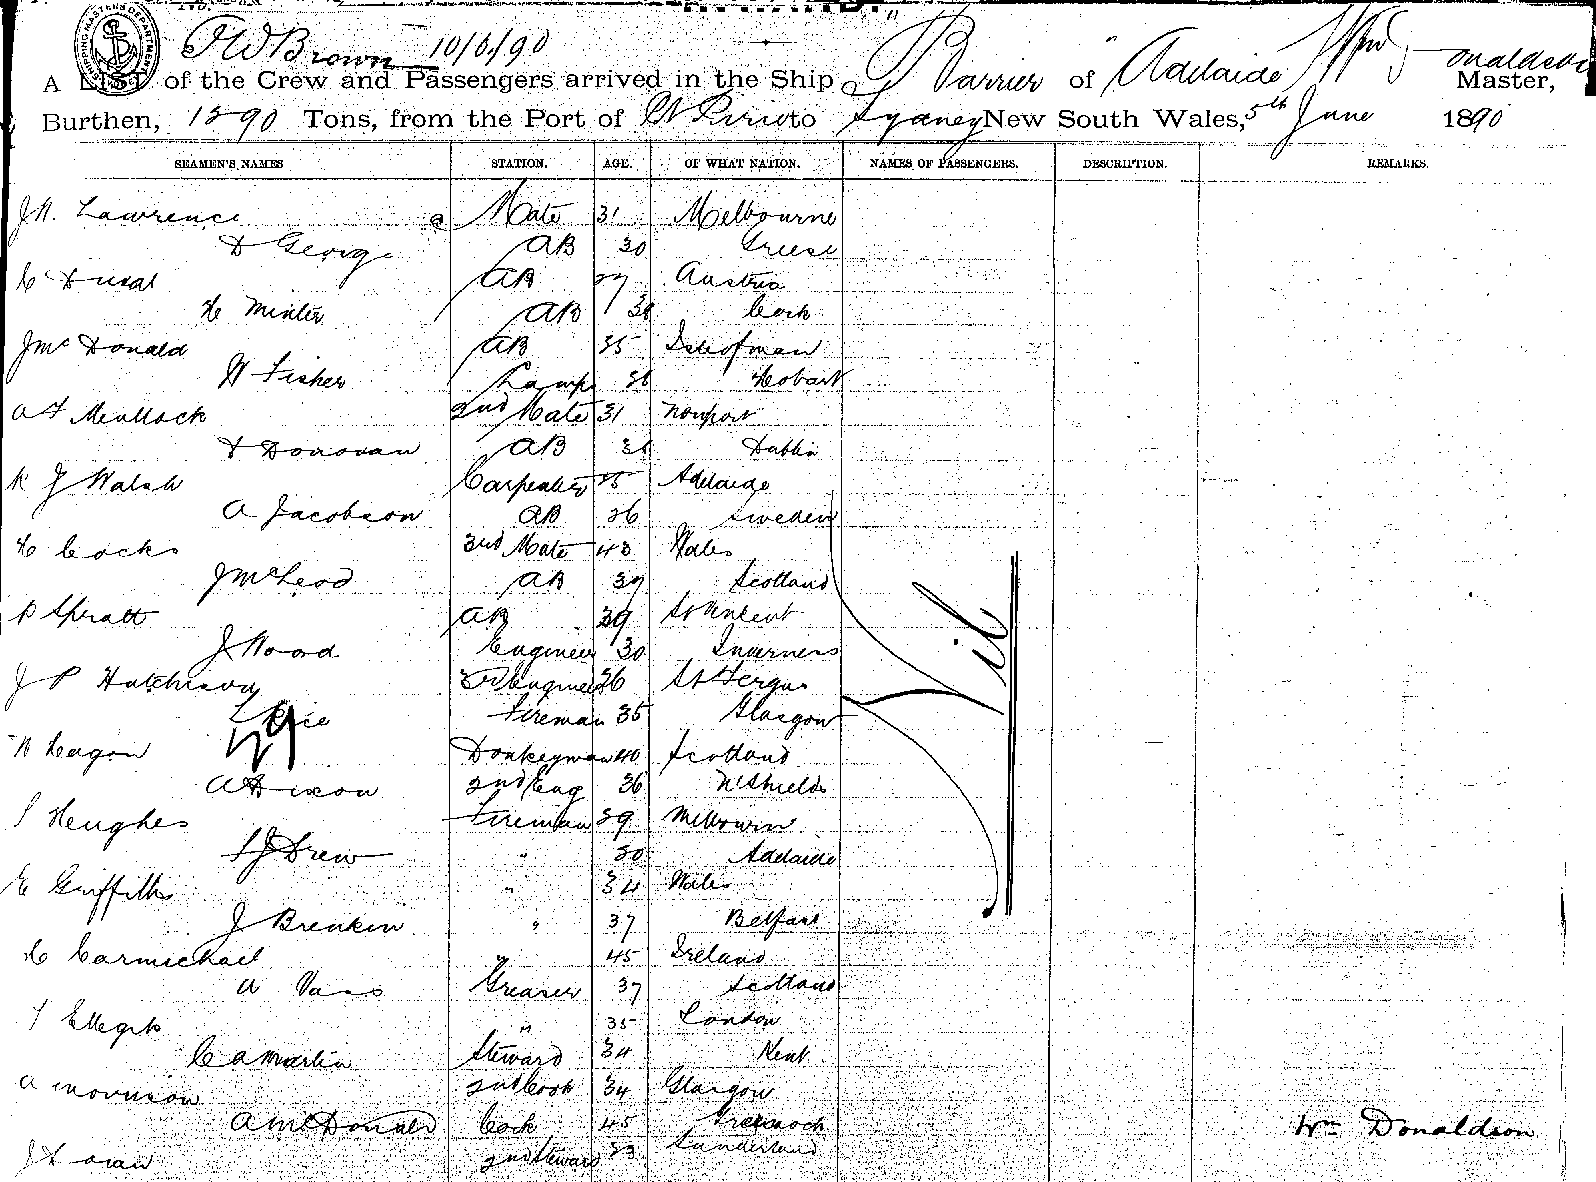 SHIPPING MASTERS DEPARTMENT
P W Brown 10/6/90
A LIST of the Crew and Passengers arrived in the Ship Barrier of Adelaide Donaldson Master,
Burthen, 1290 Tons, from the Port of Pt Pirie to Sydney New South Wales, 5th June 1890
SEAMEN'S NAMES STATION. AGE. OF WHAT NATION. NAMES OF PASSENGERS. DESCRIPTION. REMARKS.
J W. Lawrence Mate 31 Melbourne
D George AB 30 Greese
C AB 27 Austria
H Minter AB Cork
J McDonald AB 35 Isleofman
W Fisher Lamps Hobart
A F Mullock 2nd Mate 31 Newport
D Donovan AB Dublin
R J Walsh Carpenter Adelaide
A Jacobson AB 26 Sweden
H Cocks 3rd Mate 43 Wales
J McLeod AB 39 Scotland
P Spratt AB 39 St Vincent
J Wood Engineer 30 Inverness
J P Hutchison 3rd Engineer 26 St Fergus
Rice Fireman 35 Glasgow
W Leagon Donkeyman 40 Scotland
Nil
A Dixon 2nd Eng 36 N Shields
Hughes Fireman 29
S J Drew " Adelaide
E Griffiths " 34 Wales
J Brenkin " 37 Belfast
H Carmichael " 45 Ireland
A Vass Greaser 37 Scotland
" 35 London
C A Martin Steward 34 Kent
A Morrison 2nd Cook 34 Glasgow
A McDonald Cook 45 Greenock
Wm Donaldson
2nd Steward 23 Sunderland